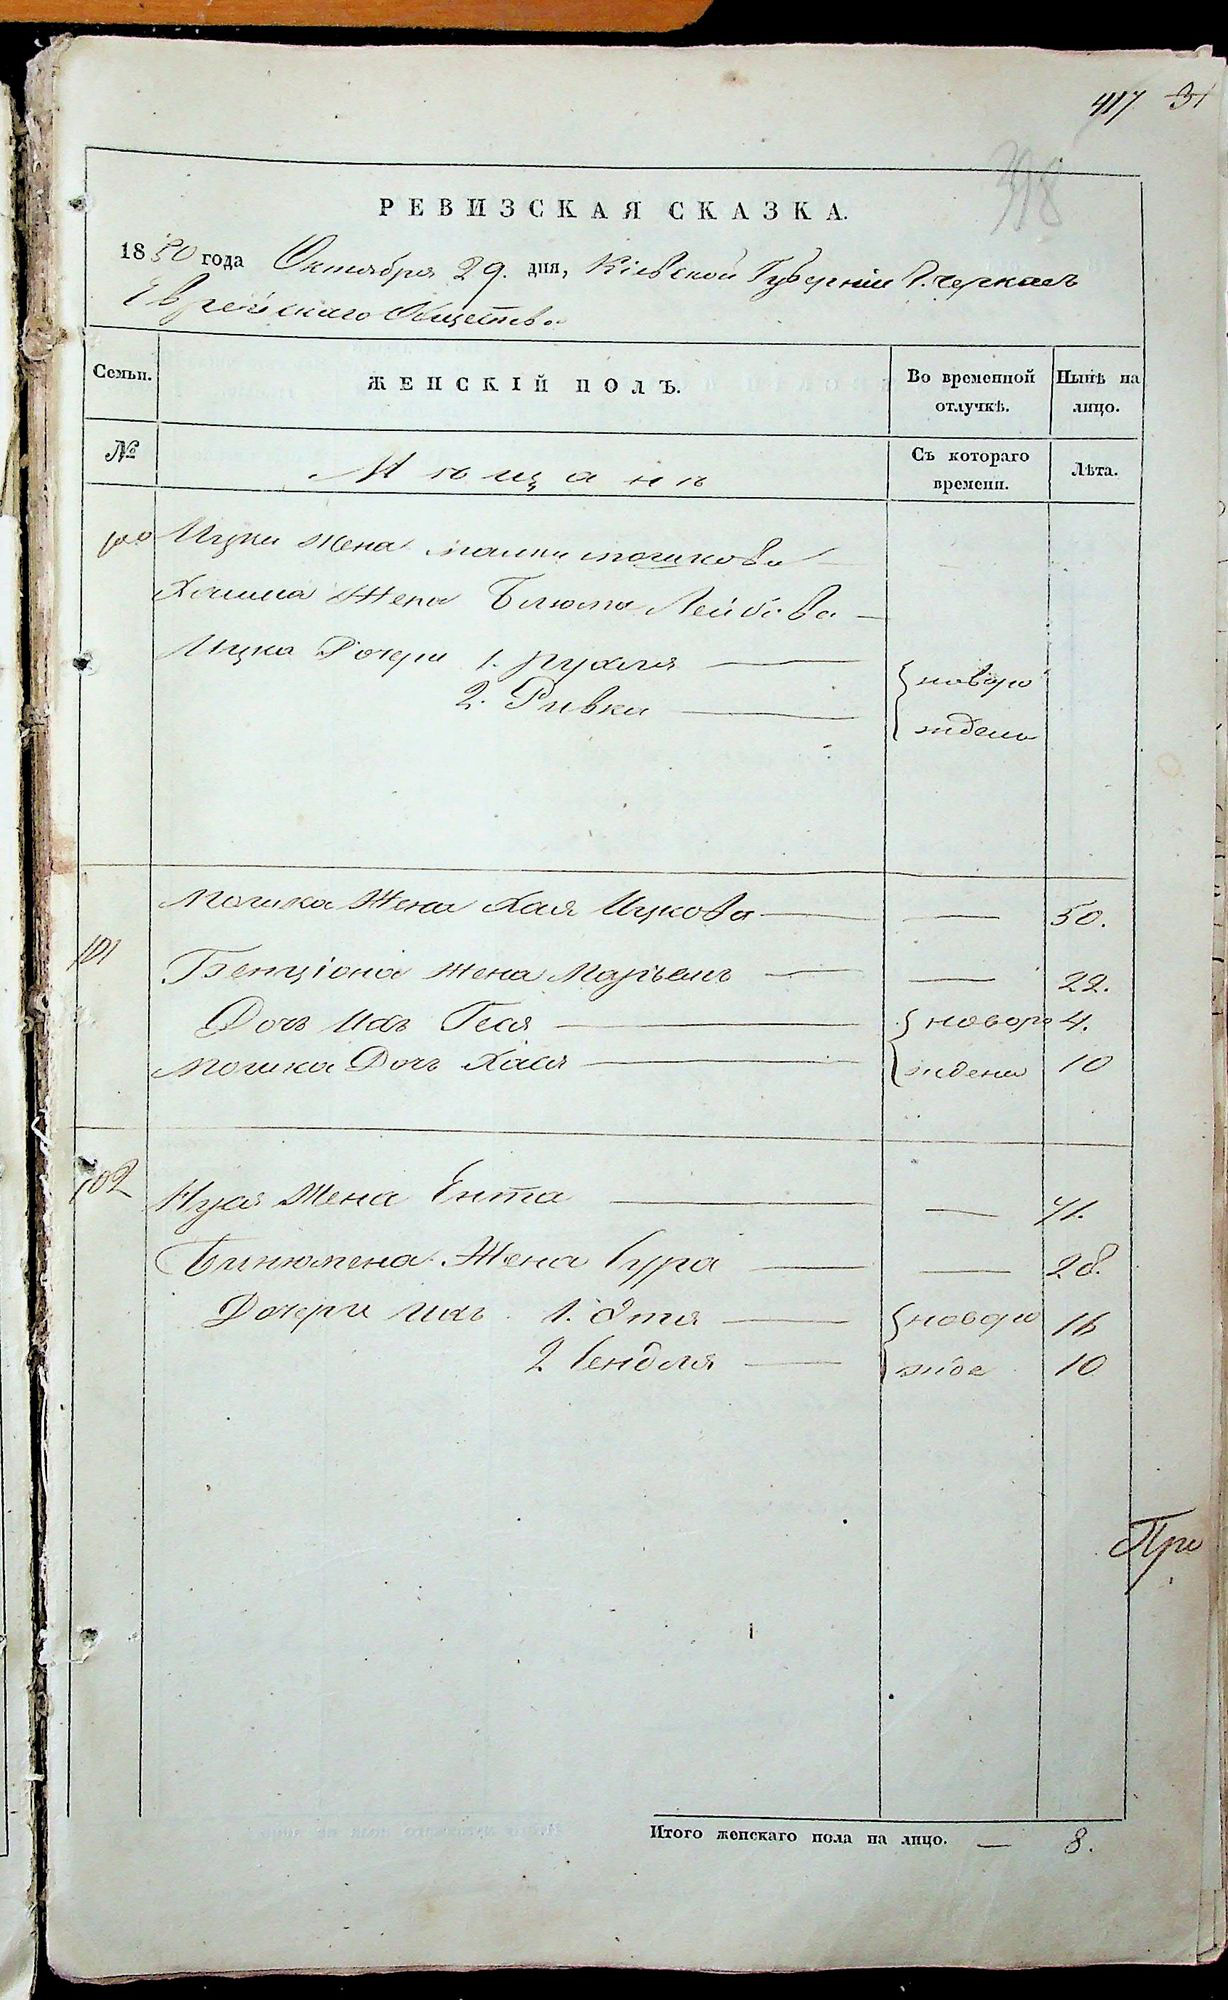 417 31
398
РЕВИЗСКАЯ СКАЗКА.
1850 года Октября 29. дня, Кіевской Губерніи Г. Черкасъ
Еврейскаго Общества
Семьи. ЖЕНСКІЙ ПОЛЪ. Во временной отлучкѣ. Нынѣ на лицо.
№ Мѣщанъ Съ котораго времени. Лѣта.
100 Ицки Жена Мошкова —
Жена Блюма Лейбова —
Ицка Дочери 1. Рухля — новоро
2. Ривка — ждены
Мошка Жена Хая Ицкова — — 50.
101 Бенціона Жена Марьемъ — — 22.
Дочь Ихъ Геся — новоро 4.
Мошка Дочь Хася — ждены 10
102 Нухя Жена Ента — — 41.
Бинюмена Жена Сура — — 28.
Дочери Ихъ 1. Этя — новоро 16
2 Гендля — жде 10
При
Итого женскаго пола на лицо. — 8.